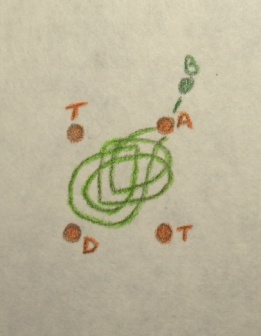 B
T
A
D
T